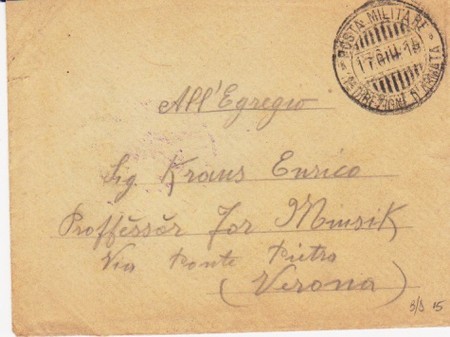 POSTA MILITARE
1ª DIREZIONE D'ARMATA
All'Egregio
Sig Kraus Enrico
Proffëssŏr for Miusik
Via Ponte Pietra
(Verona)